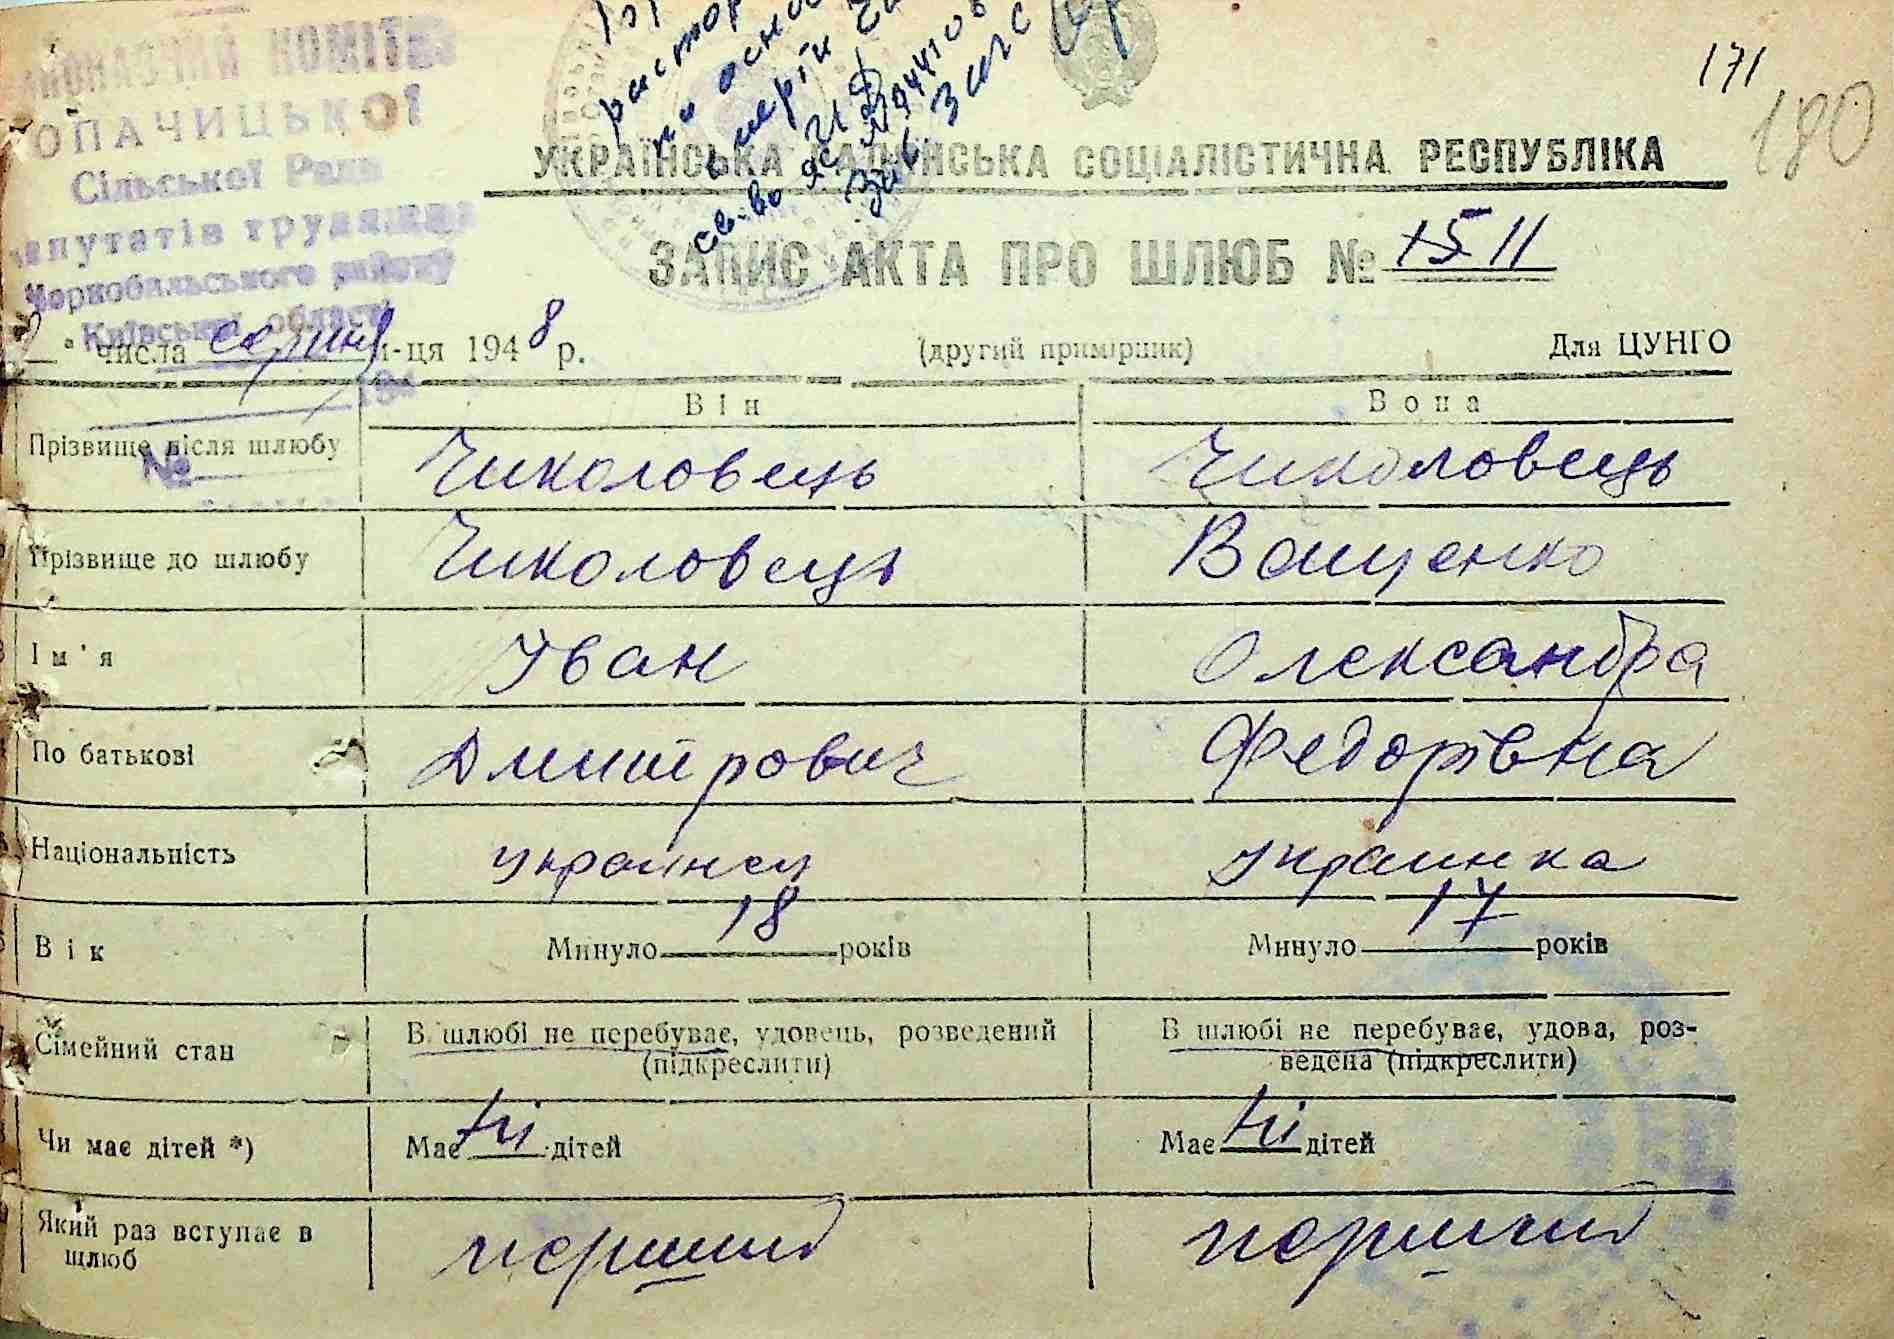 КОМІТЕТ
ОПАЧИЦЬКОЇ
Сільської Ради
депутатів трудящих
Чорнобильського району
Київської області
194
№
171
180
УКРАЇНСЬКА РАДЯНСЬКА СОЦІАЛІСТИЧНА РЕСПУБЛІКА
ЗАПИС АКТА ПРО ШЛЮБ № 15 11
числа серпня м-ця 1948 р. (другий примірник) Для ЦУНГО
Він Вона
Прізвище після шлюбу Чиколовець Чиколовець
Прізвище до шлюбу Чиколовець Ващенко
Ім'я Іван Олександра
По батькові Дмитрович Федорівна
Національність украинец украинка
Вік Минуло 18 років Минуло 17 років
Сімейний стан В шлюбі не перебуває, удовець, розведений В шлюбі не перебуває, удова, роз-
(підкреслити) ведена (підкреслити)
Чи має дітей *) Має ні дітей Має ні дітей
Який раз вступає в перший перший
шлюб